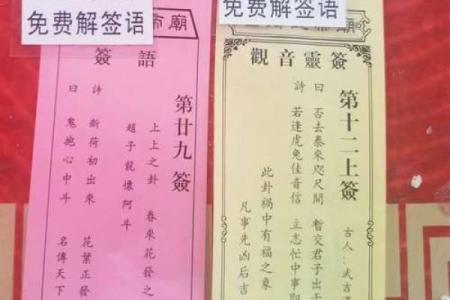 免费解签语
廟
簽語
第廿九簽
上上之卦 春來花發之
趙子龍懷阿斗
詩 新荷初出來 花葉正發
曰 鬼抱心中斗 名傳天下
免费解签语
廟
觀音靈簽
第十二上簽
古人:武吉
曰 否去泰來咫尺間 暫交君子出于
詩 若逢虎兔佳音信 立志忙中事即
此卦禍中有福之象
凡事先凶后吉